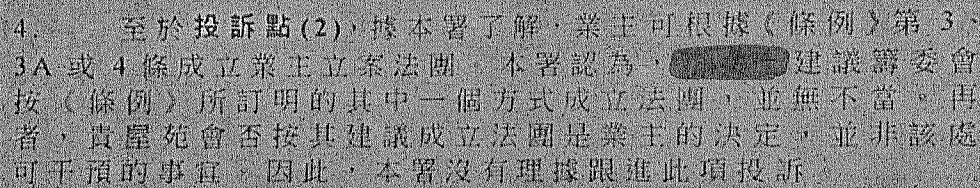 4. 至於投訴點(2)，據本署了解，業主可根據《條例》第 3、
3A 或 4 條成立業主立案法團。本署認為，建議籌委會
按《條例》所訂明的其中一個方式成立法團，並無不當。再
者，貴屋苑會否按其建議成立法團是業主的決定，並非該處
可干預的事宜。因此，本署沒有理據跟進此項投訴